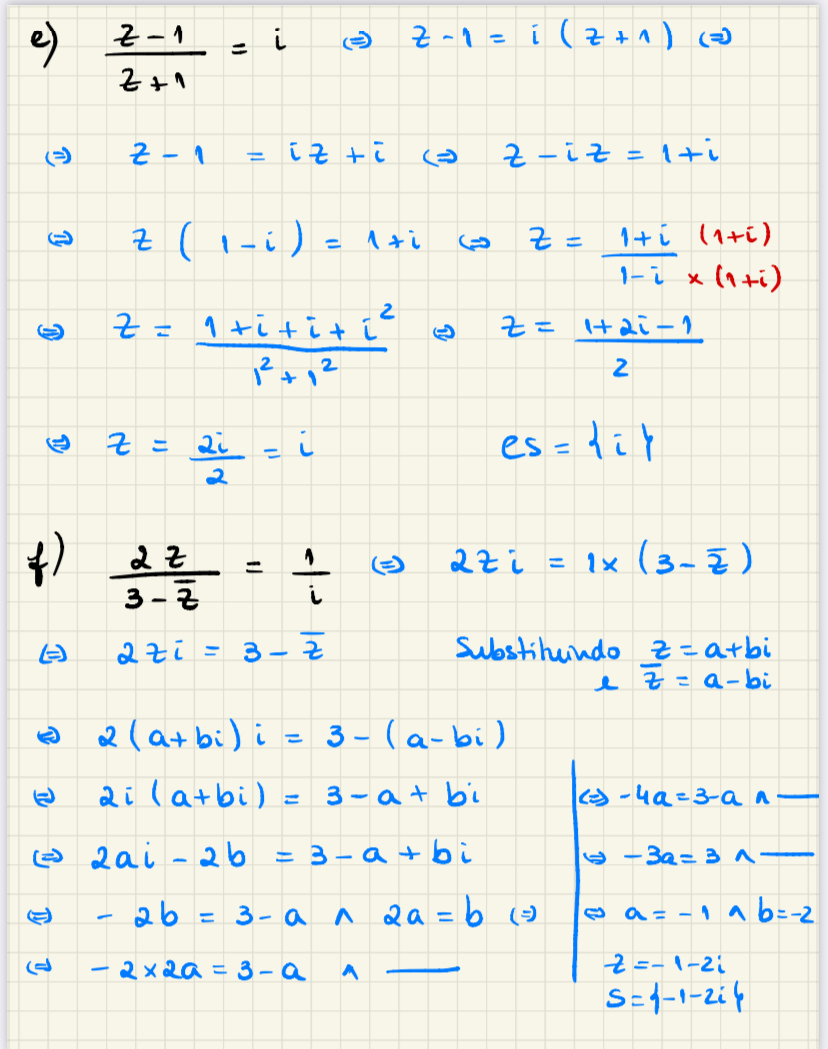 e) (z-1)/(z+1) = i ⇔ z-1 = i(z+1) ⇔
⇔ z-1 = iz+i ⇔ z-iz = 1+i
⇔ z(1-i) = 1+i ⇔ z = (1+i)/(1-i) × (1+i)/(1+i)
⇔ z = (1+i+i+i²)/(1²+1²) ⇔ z = (1+2i-1)/2
⇔ z = 2i/2 = i es = {i}
f) 2z/(3-z̅) = 1/i ⇔ 2zi = 1×(3-z̅)
⇔ 2zi = 3-z̅ Substituindo z = a+bi
e z̅ = a-bi
⇔ 2(a+bi)i = 3-(a-bi)
⇔ 2i(a+bi) = 3-a+bi
⇔ 2ai-2b = 3-a+bi
⇔ -2b = 3-a ∧ 2a = b ⇔
⇔ -2×2a = 3-a ∧ —
⇔ -4a = 3-a ∧ —
⇔ -3a = 3 ∧ —
⇔ a = -1 ∧ b = -2
z = -1-2i
S = {-1-2i}